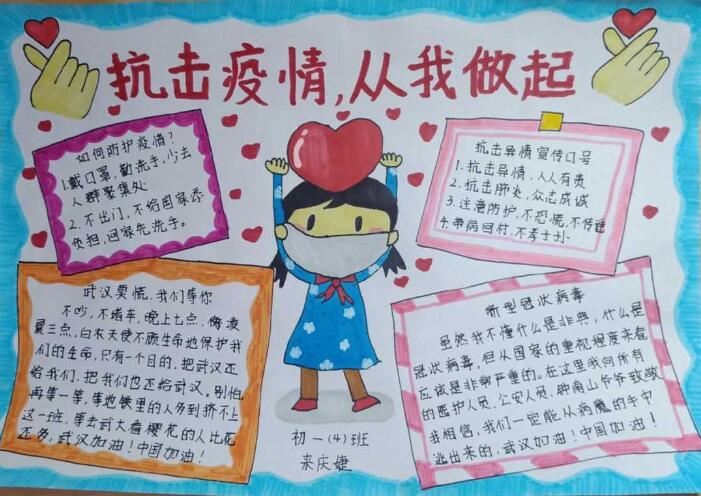 抗击疫情,从我做起
如何防护疫情?
1.戴口罩,勤洗手,少去
人群聚集处
2.不出门,不给国家添
负担,回家先洗手。
抗击异情宣传口号
1.抗击异情,人人有责
2.抗击肺炎,众志成诚
3.注意防护,不恐慌,不传谣
4.带病回村,不孝子孙
武汉莫慌,我们等你
不吵,不堵车,晚上七点,
凌
晨三点,白衣天使不顾生命地保护我
们的生命,只有一个目的,把武汉还
给我们,把我们也还给武汉。别怕
再等一等,等地铁里的人多到挤不上
这一班,等去武大看樱花的人比花
还多,武汉加油!中国加油!
新型冠状病毒
虽然我不懂什么是非典,什么是
冠状病毒,但从国家的重视程度来看
应该是非常严重的。在这里我向所有
的医护人员、公安人员、钟南山爷爷致敬
我相信,我们一定能从病魔的手中
逃出来的,武汉加油!中国加油!
初一(4)班
来庆婕